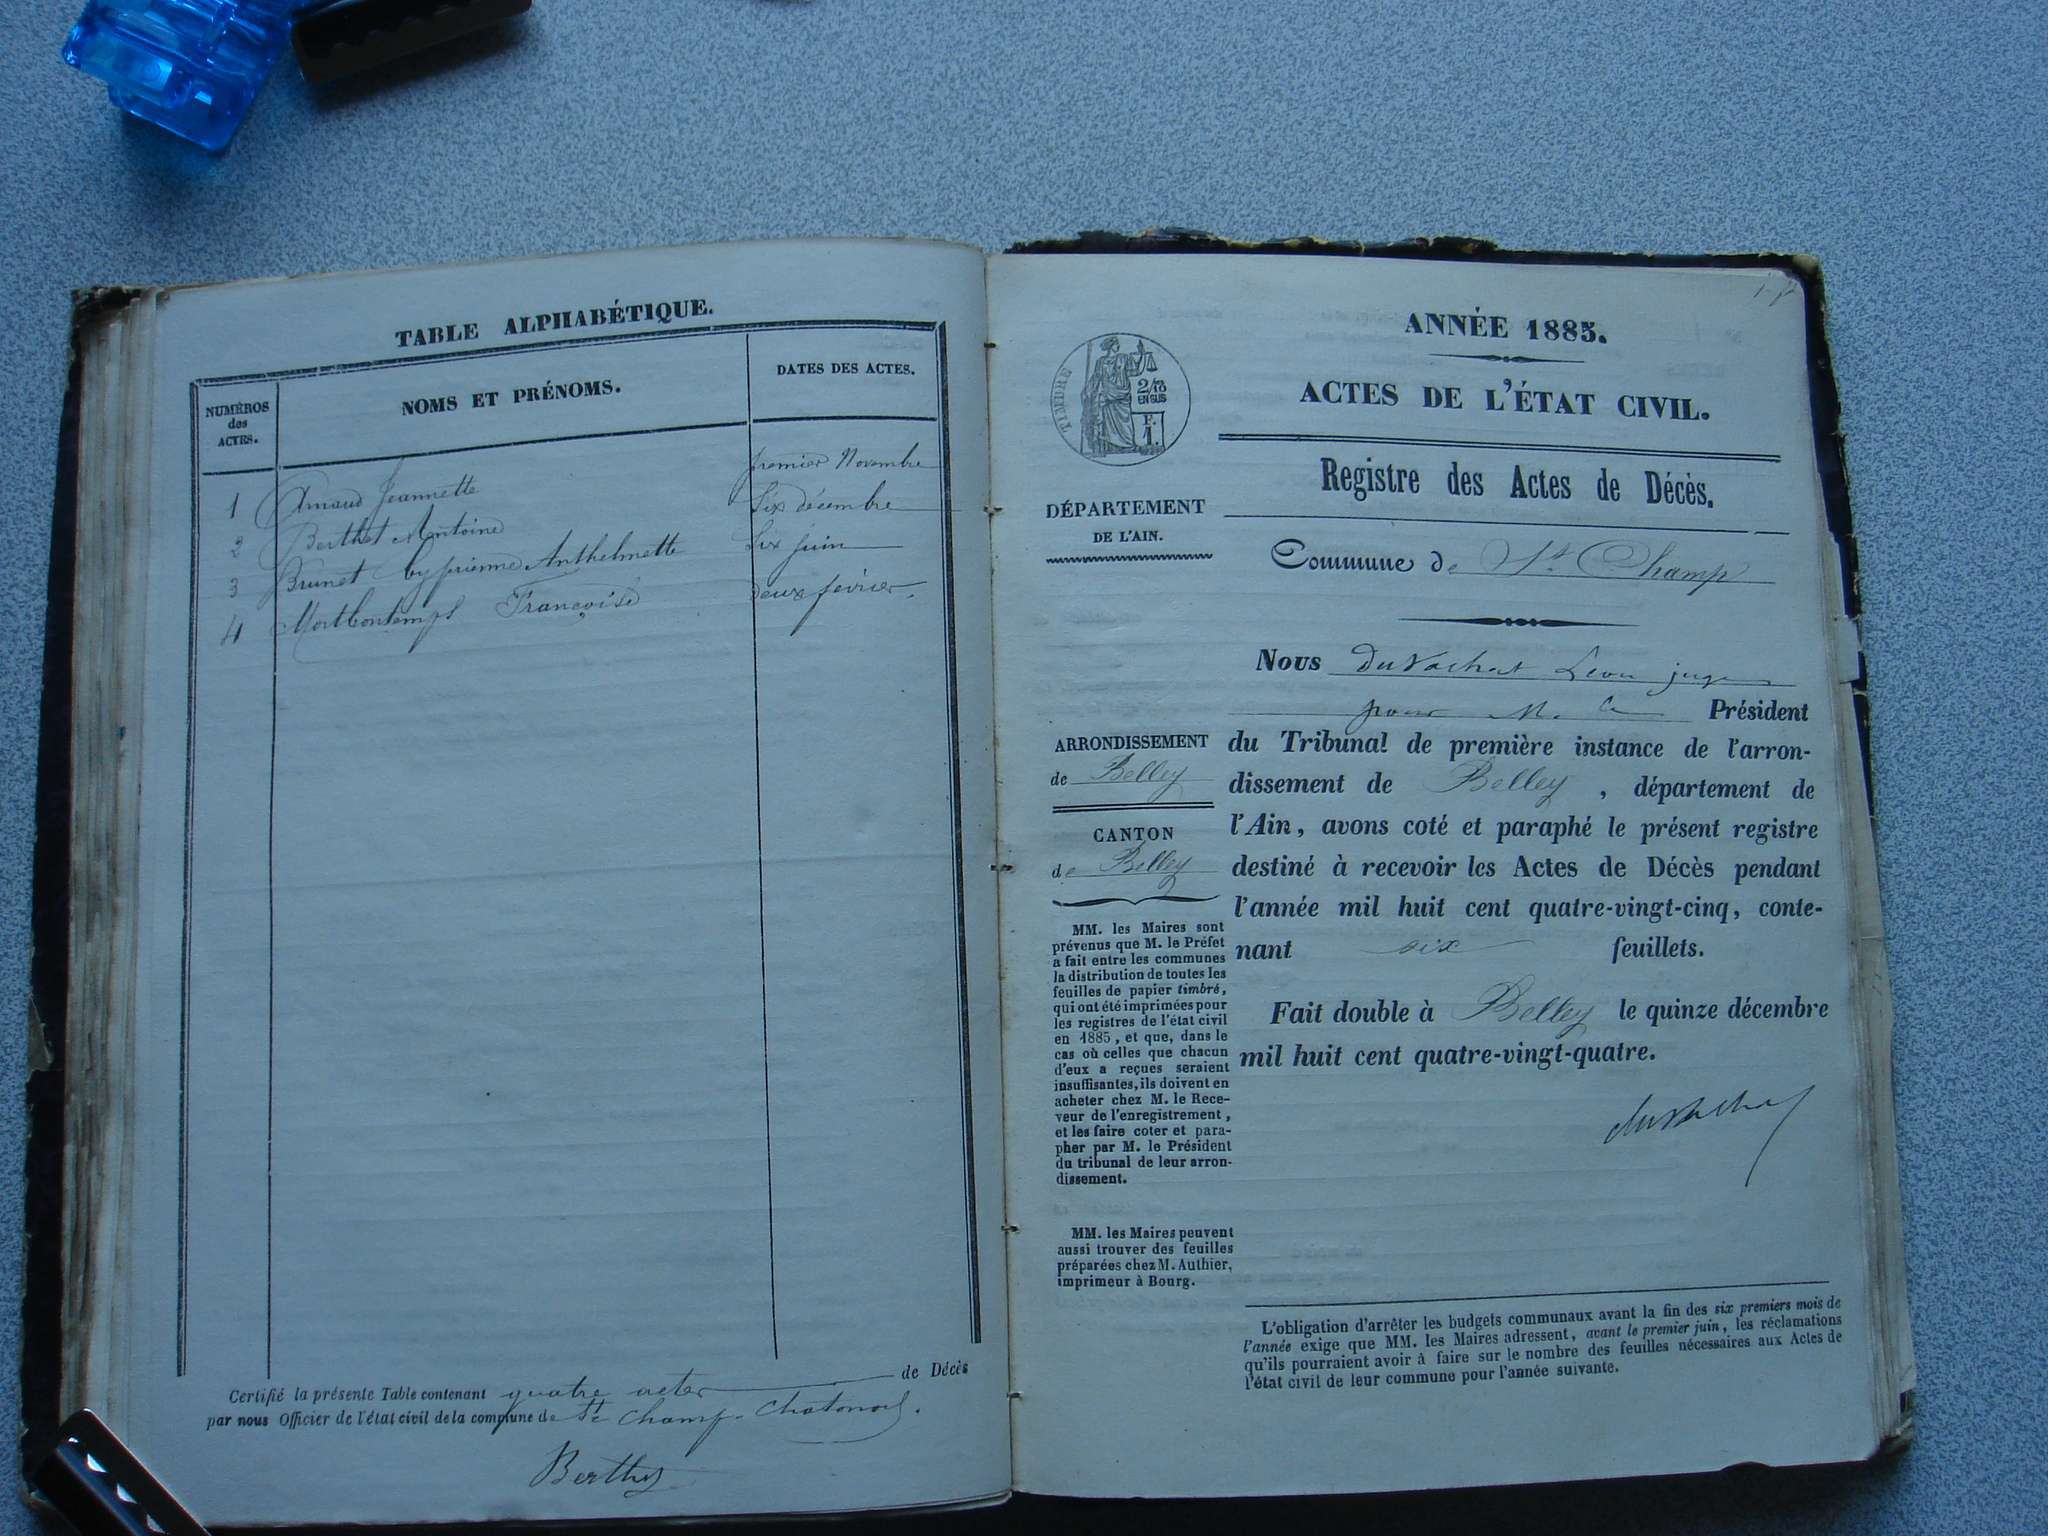 TABLE ALPHABÉTIQUE.
NUMÉROS des ACTES.
NOMS ET PRÉNOMS.
DATES DES ACTES.
1 Arnaud Jeannette premier Novembre
2 Berthet Antoine Six décembre
3 Brunet Cyprienne Anthelmette Six juin
4 Françoise deux février
Certifié la présente Table contenant quatre actes de Décès
par nous Officier de l'état civil de la commune de St Champ-Chatonod.
ANNÉE 1885.
ACTES DE L'ÉTAT CIVIL.
TIMBRE
2/10
EN SUS
F.
1.
Registre des Actes de Décès.
DÉPARTEMENT
DE L'AIN.
Commune de St Champ
Nous Du Vachat Léon juge
pour M. le Président
du Tribunal de première instance de l'arron-
dissement de Belley, département de
l'Ain, avons coté et paraphé le présent registre
destiné à recevoir les Actes de Décès pendant
l'année mil huit cent quatre-vingt-cinq, conte-
nant six feuillets.
Fait double à Belley le quinze décembre
mil huit cent quatre-vingt-quatre.
ARRONDISSEMENT
de Belley
CANTON
de Belley
MM. les Maires sont
prévenus que M. le Préfet
a fait entre les communes
la distribution de toutes les
feuilles de papier timbré,
qui ont été imprimées pour
les registres de l'état civil
en 1885, et que, dans le
cas où celles que chacun
d'eux a reçues seraient
insuffisantes, ils doivent en
acheter chez M. le Rece-
veur de l'enregistrement,
et les faire coter et para-
pher par M. le Président
du tribunal de leur arron-
dissement.
MM. les Maires peuvent
aussi trouver des feuilles
préparées chez M. Authier,
imprimeur à Bourg.
L'obligation d'arrêter les budgets communaux avant la fin des six premiers mois de
l'année exige que MM. les Maires adressent, avant le premier juin, les réclamations
qu'ils pourraient avoir à faire sur le nombre des feuilles nécessaires aux Actes de
l'état civil de leur commune pour l'année suivante.